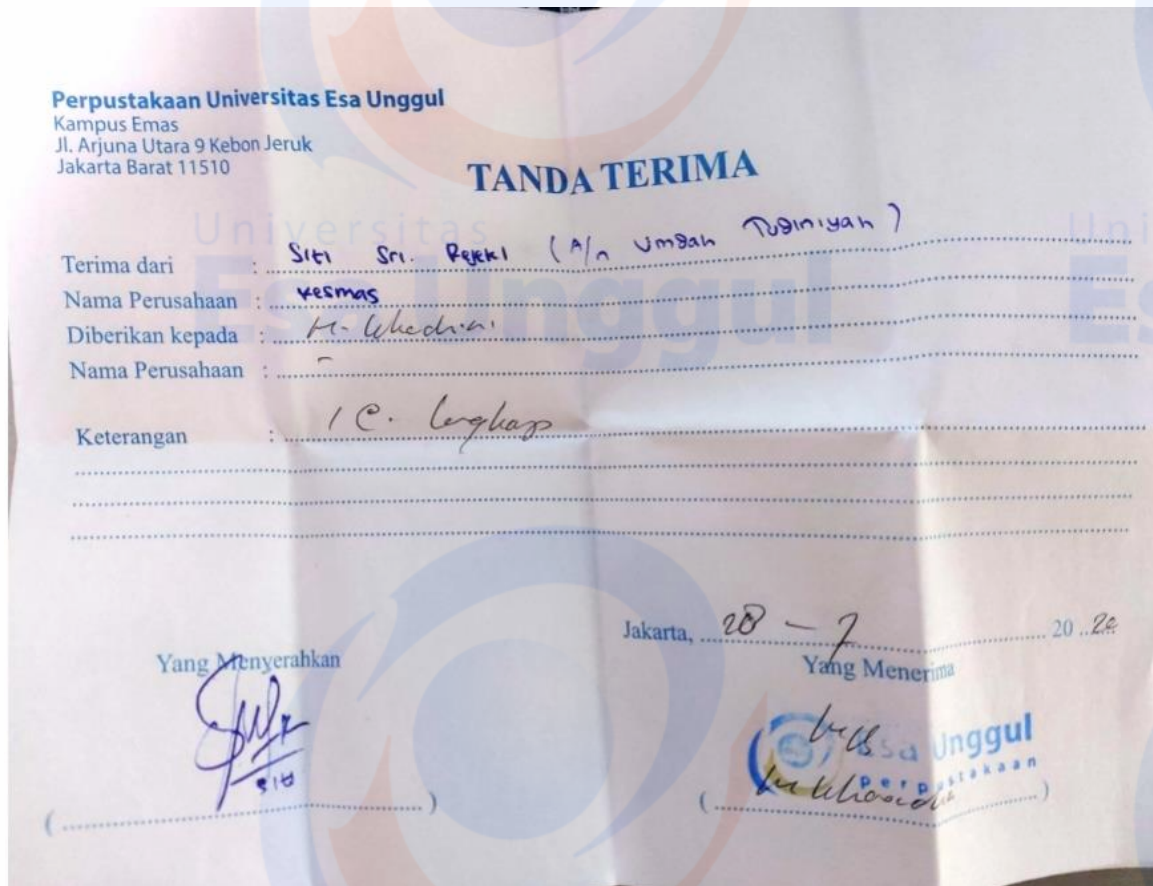 Perpustakaan Universitas Esa Unggul
Kampus Emas
Jl. Arjuna Utara 9 Kebon Jeruk
Jakarta Barat 11510
TANDA TERIMA
Universitas
Esa Unggul
Terima dari : Siti Sri Rejeki (A/n Umdah
Nama Perusahaan : Kesmas
Diberikan kepada : M.
Nama Perusahaan : -
Keterangan : 1 C. lengkap
Jakarta, 28 - 7 2020
Yang Menyerahkan
Yang Menerima
Siti
Esa Unggul
Perpustakaan